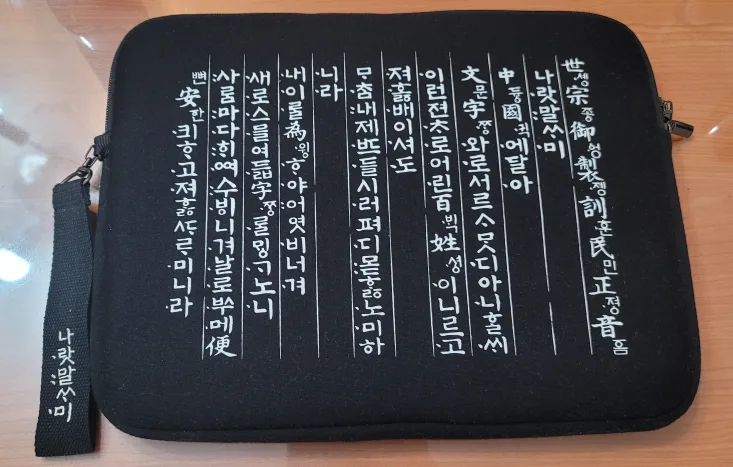 世솅宗종御엉製졩訓훈民민正졍音흠
나랏말ᄊᆞ미
中듕國귁에달아
文문字ᄍᆞᆼ와로서르ᄉᆞᄆᆞᆺ디아니ᄒᆞᆯᄊᆡ
이런젼ᄎᆞ로어린百ᄇᆡᆨ姓셩이니르고
져ᄒᆞᇙ배이셔도
ᄆᆞᄎᆞᆷ내제ᄠᅳ들시러펴디몯ᄒᆞᇙ노미하
니라
내이ᄅᆞᆯ為윙ᄒᆞ야어엿비너겨
새로스믈여듧字ᄍᆞᆼᄅᆞᆯᄆᆡᇰᄀᆞ노니
사ᄅᆞᆷ마다ᄒᆡᅇᅧ수ᄫᅵ니겨날로ᄡᅮ메便
뼌安한킈ᄒᆞ고져ᄒᆞᇙᄯᆞᄅᆞ미니라
나랏말ᄊᆞ미